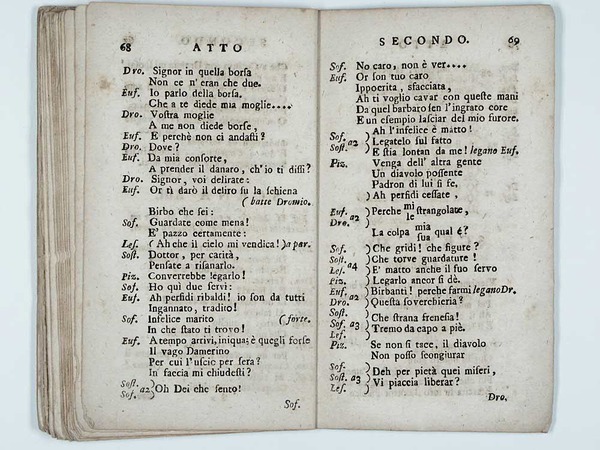 68 ATTO
Dro. Signor in quella borſa
Non ce n' eran che due.
Euf. Io parlo della borſa.
Che a te diede mia moglie....
Dro. Voſtra moglie
A me non diede borſe,
Euf. E perchè non ci andaſti?
Dro. Dove?
Euf. Da mia conſorte,
A prender il danaro, ch' io ti diſſi?
Dro. Signor, voi delirate:
Euf. Or ti darò il deliro ſu la ſchiena
(batte Dromio.
Birbo che ſei:
Sof. Guardate come mena!
E' pazzo certamente:
Leſ. (Ah che il cielo mi vendica!) a par.
Soſt. Dottor, per carità,
Penſate a riſanarlo.
Piz. Converrebbe legarlo!
Sof. Ho quì due ſervi:
Euf. Ah perfidi ribaldi! io ſon da tutti
Ingannato, tradito!
Sof. Infelice marito (forte.
In che ſtato ti trovo!
Euf. A tempo arrivi, iniqua; è quegli forſe
Il vago Damerino
Per cui l'uſcio per ſera?
In faccia mi chiudeſti?
Soſt. Sof. a2 ) Oh Dei che ſento!
Sof.
SECONDO. 69
Sof. No caro, non è ver....
Euf. Or ſon tuo caro
Ippocrita, sfacciata,
Ah ti voglio cavar con queſte mani
Da quel barbaro ſen l'ingrato core
E un eſempio laſciar del mio furore.
Sof. ) Ah l'infelice è matto!
Soſt. a2 ) Legatelo ſul fatto
) E ſtia lontan da me! legano Euf.
Piz. Venga dell' altra gente
Un diavolo poſſente
Padron di lui ſi fe.
) Ah perfidi ceſſate,
Euf. a2 ) Perche mi le ſtrangolate,
Dro. ) La colpa mia ſua qual é?
Sof. ) Che gridi! che figure?
Soſt. a4 ) Che torve guardature!
Leſ. ) E' matto anche il ſuo ſervo
Piz. ) Legarlo ancor ſi dè.
Euf. a2 ) Birbanti! perche farmi legano Dr.
Dro. ) Queſta ſoverchieria?
Soſt. ) Che ſtrana freneſia!
Sof. a3 ) Tremo da capo a piè.
Leſ. )
Piz. Se non ſi tace, il diavolo
Non poſſo ſcongiurar
Sof. ) Deh per pietà quei miſeri,
Soſt. a3 ) Vi piaccia liberar?
Leſ. )
Dro.